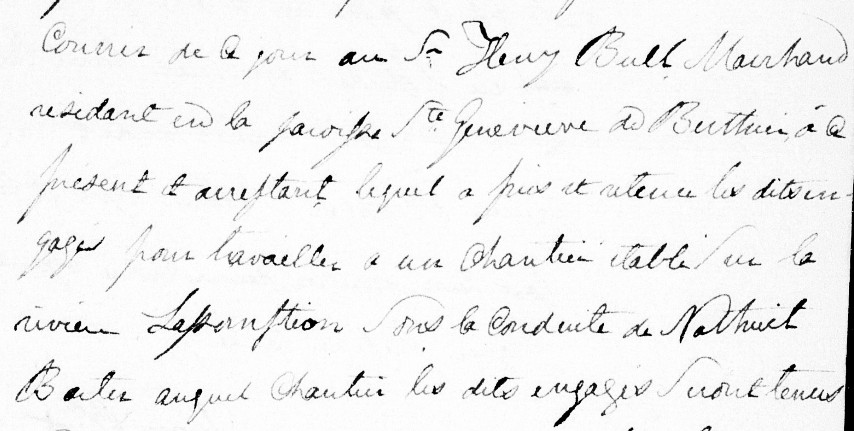 de ce jour au Sr. Henry Bull Marchand
résidant en la paroisse Ste Genevieve de Berthier, à ce
présent et acceptant, lequel a pris et retenu les dits en-
gagés pour travailler a un Chantier etabli sur la
riviere Lassomption Sous la Conduite de
auquel Chantier les dits engagés Seront tenus